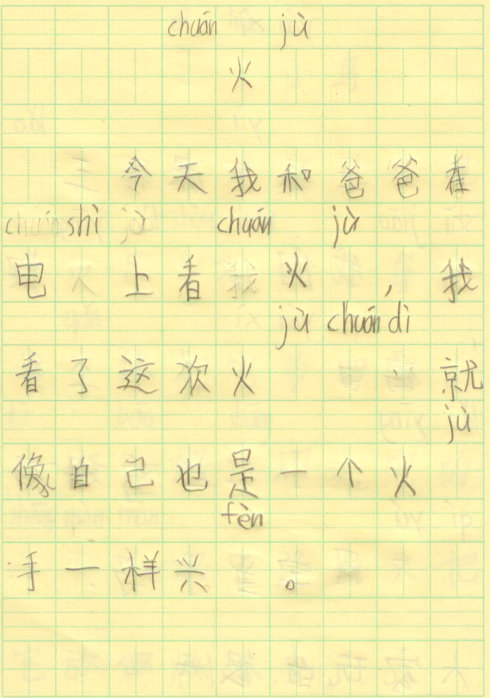 chuán jù
火
今天我和爸爸看
shì chuán jù
电 上看 火 ，我
jù chuán dì
看了这次火 就
jù
像自己也是一个火
fèn
手一样兴 。